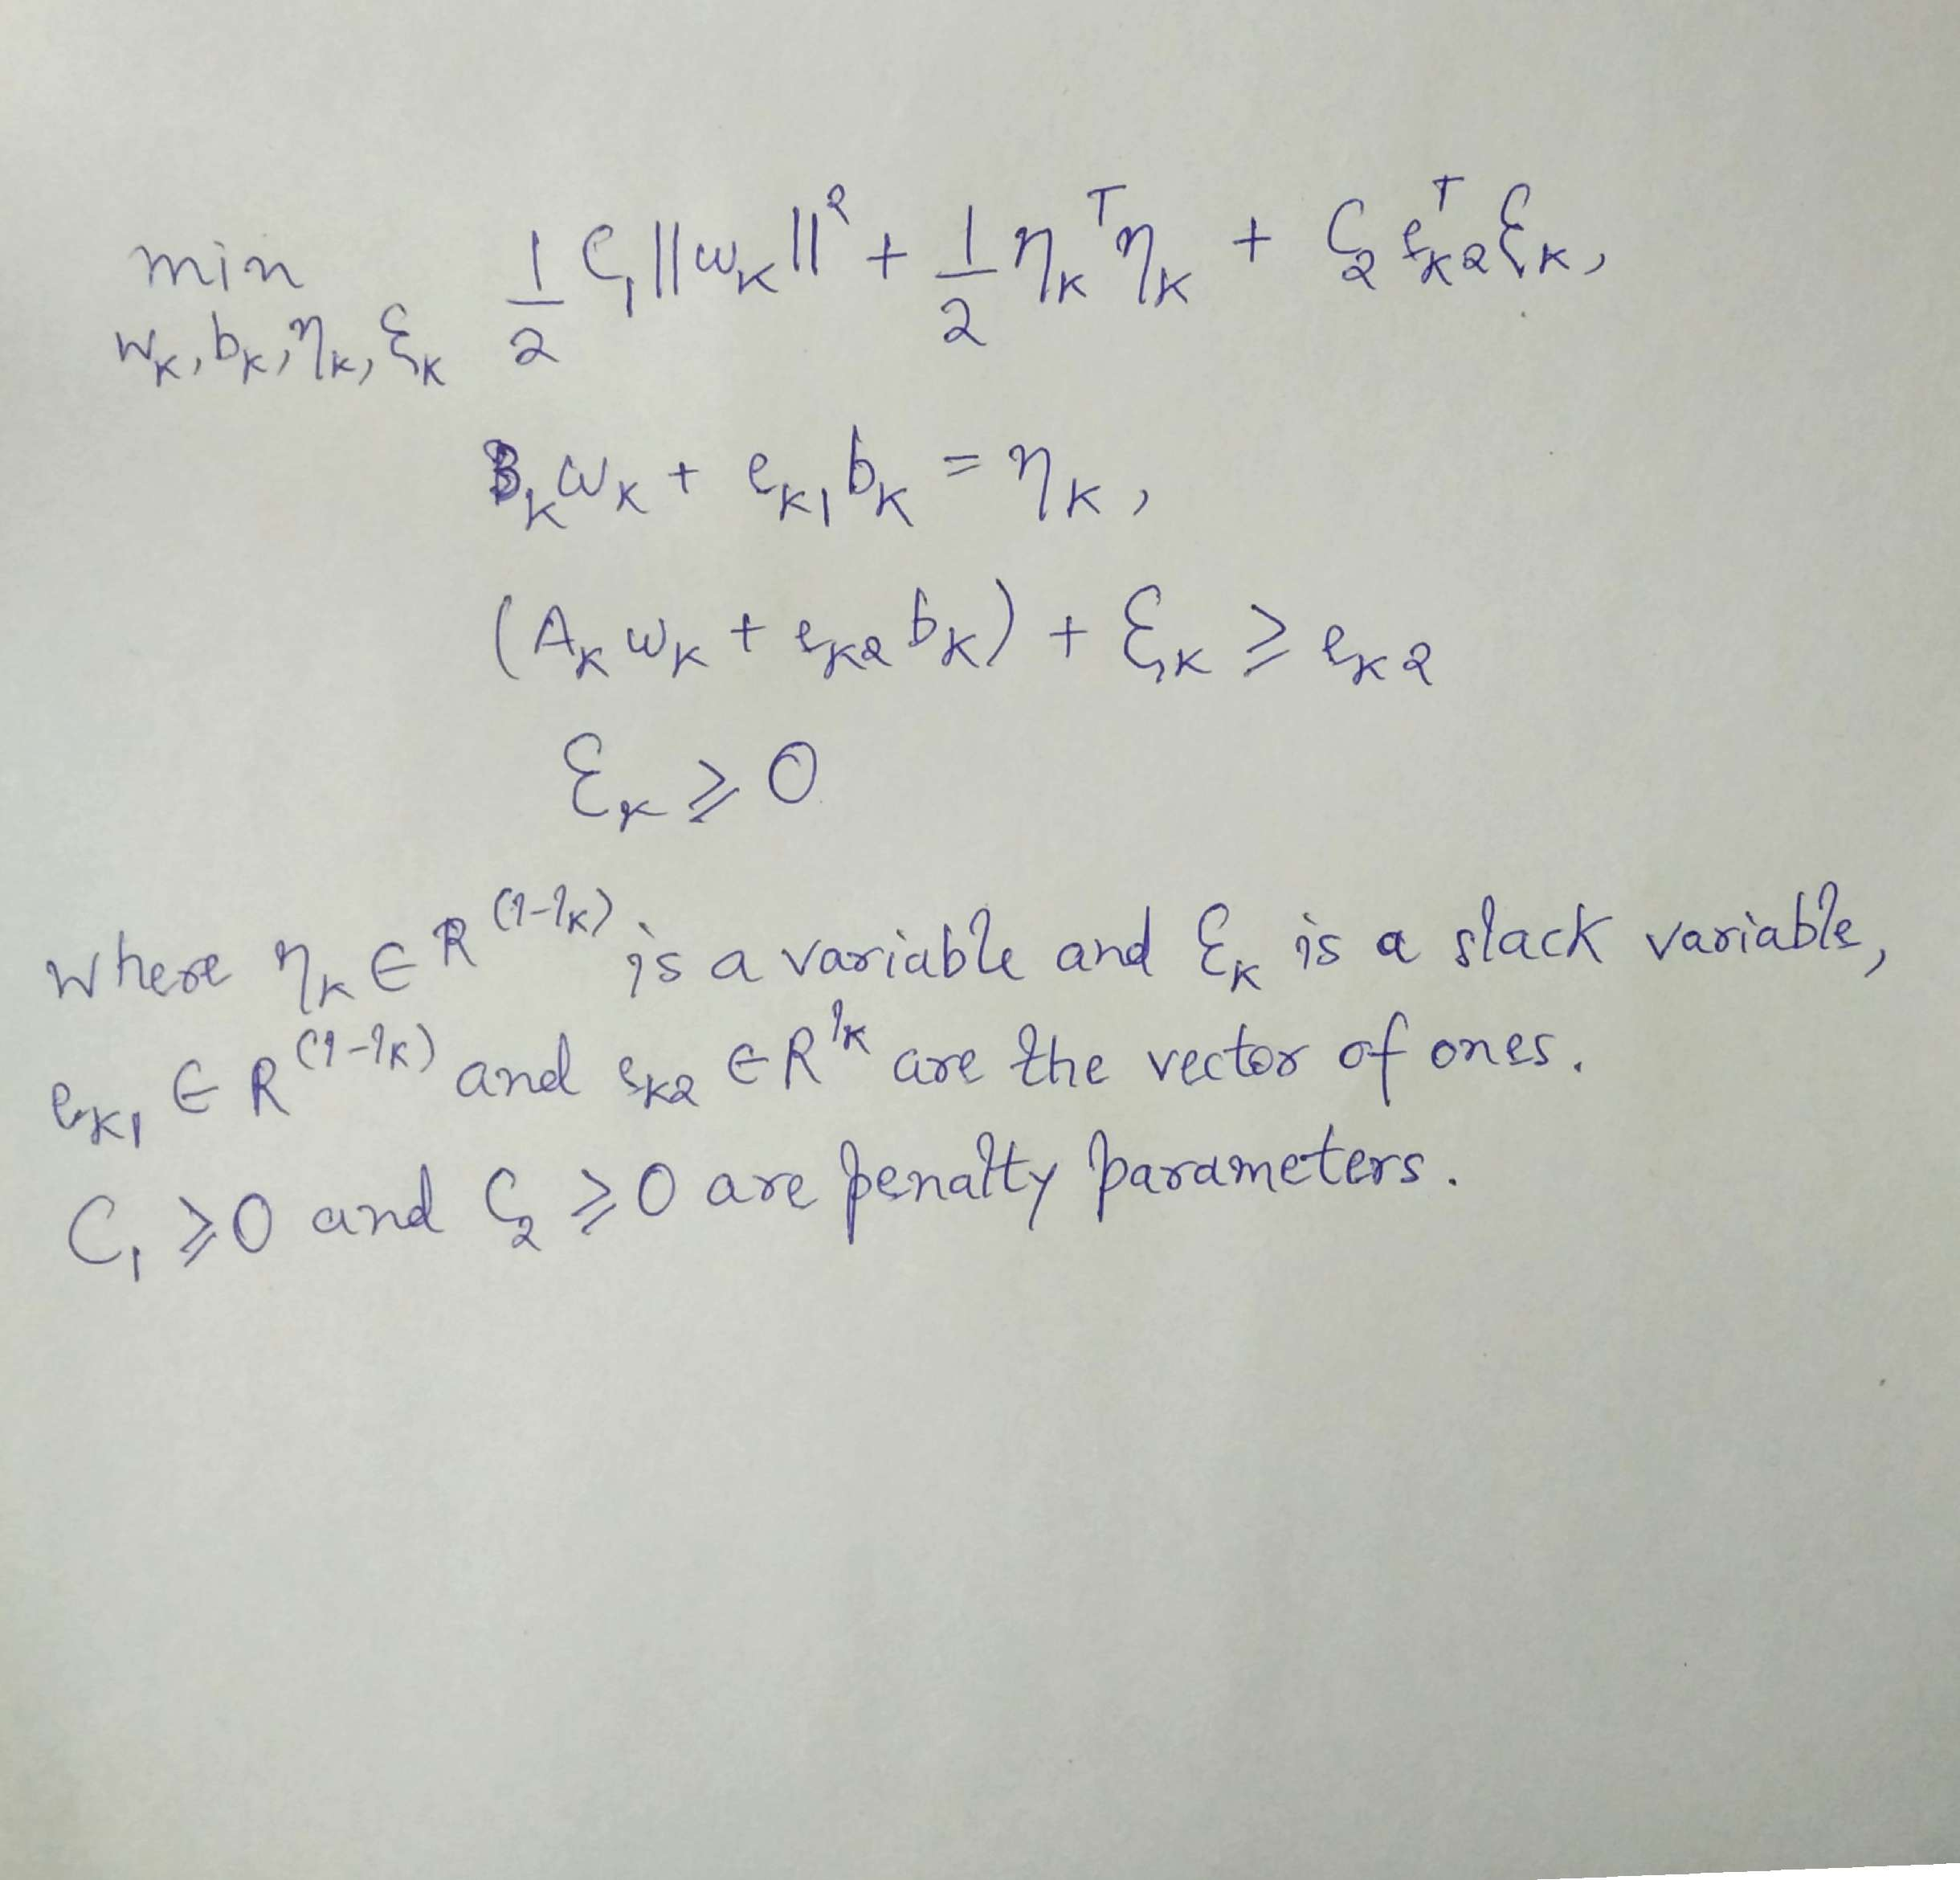 min 1/2 C₁||wₖ||² + 1/2 ηₖᵀηₖ + C₂ eₖ₂ᵀξₖ,
wₖ, bₖ, ηₖ, ξₖ
Bₖwₖ + eₖ₁bₖ = ηₖ,
(Aₖwₖ + eₖ₂bₖ) + ξₖ ≥ eₖ₂
ξₖ ≥ 0
where ηₖ ∈ R⁽ˡ⁻ˡₖ⁾ is a variable and ξₖ is a slack variable,
eₖ₁ ∈ R⁽ˡ⁻ˡₖ⁾ and eₖ₂ ∈ Rˡₖ are the vector of ones.
C₁ ≥ 0 and C₂ ≥ 0 are penalty parameters.